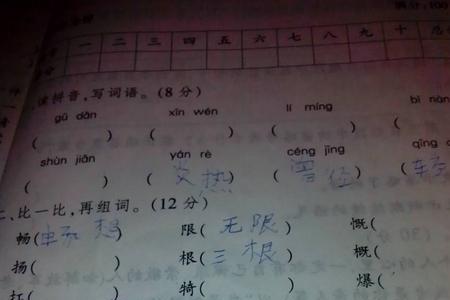 满分:100
一 二 三 四 五 六 七 八 九 十 总
分
读拼音,写词语。(8分)
gū dān xīn wén lí míng
( ) ( ) ( ) (
shùn jiān yán rè céng jīng qīng
( ) (炎热) (曾经) (轻
、比一比,再组词。(12分)
畅(畅想) 限(无限) 慨(
扬( 根(三根) 概(
打( 犄( 爆(